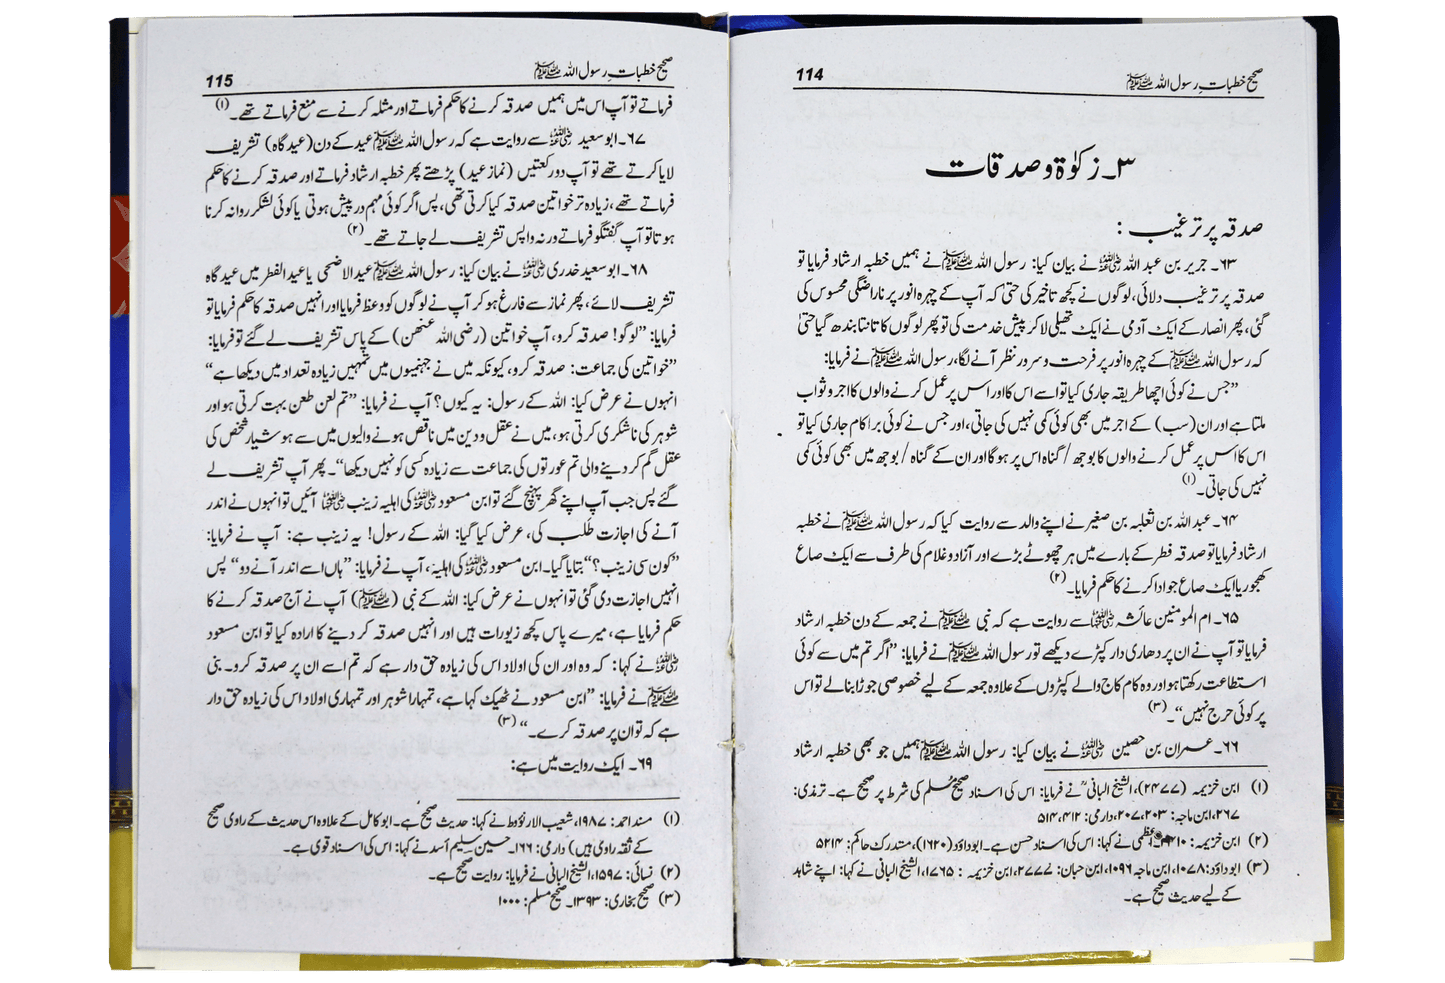 صحیح خطباتِ رسول اللہ ﷺ
114
۳۔ زکوٰۃ و صدقات
صدقہ پر ترغیب :
۶۳۔ جریر بن عبد اللہ ؓ نے بیان کیا: رسول اللہ ﷺ نے ہمیں خطبہ ارشاد فرمایا تو
صدقہ پر ترغیب دلائی، لوگوں نے کچھ تاخیر کی حتیٰ کہ آپ کے چہرہ انور پر ناراضگی محسوس کی
گئی، پھر انصار کے ایک آدمی نے ایک تھیلی لا کر پیش خدمت کی تو پھر لوگوں کا تانتا بندھ گیا حتیٰ
کہ رسول اللہ ﷺ کے چہرہ انور پر فرحت و سرور نظر آنے لگا، رسول اللہ ﷺ نے فرمایا:
”جس نے کوئی اچھا طریقہ جاری کیا تو اسے اس کا اور اس پر عمل کرنے والوں کا اجر و ثواب
ملتا ہے اور ان (سب) کے اجر میں بھی کوئی کمی نہیں کی جاتی، اور جس نے کوئی برا کام جاری کیا تو
اس کا اس پر عمل کرنے والوں کا بوجھ / گناہ اس پر ہوگا اور ان کے گناہ / بوجھ میں بھی کوئی کمی
نہیں کی جاتی۔ (۱)
۶۴۔ عبد اللہ بن ثعلبہ بن صغیر نے اپنے والد سے روایت کیا کہ رسول اللہ ﷺ نے خطبہ
ارشاد فرمایا تو صدقہ فطر کے بارے میں ہر چھوٹے بڑے اور آزاد و غلام کی طرف سے ایک صاع
کھجور یا ایک صاع جو ادا کرنے کا حکم فرمایا۔ (۲)
۶۵۔ ام المومنین عائشہ ؓ سے روایت ہے کہ نبی ﷺ نے جمعہ کے دن خطبہ ارشاد
فرمایا تو آپ نے ان پر دھاری دار کپڑے دیکھے تو رسول اللہ ﷺ نے فرمایا: ”اگر تم میں سے کوئی
استطاعت رکھتا ہو اور وہ کام کاج والے کپڑوں کے علاوہ جمعہ کے لیے خصوصی جوڑا بنا لے تو اس
پر کوئی حرج نہیں“۔ (۳)
۶۶۔ عمران بن حصین ؓ نے بیان کیا: رسول اللہ ﷺ ہمیں جو بھی خطبہ ارشاد
(۱) ابن خزیمہ (۲۴۷۷)، الشیخ البانی ؒ نے فرمایا: اس کی اسناد صحیح مسلم کی شرط پر صحیح ہے۔ ترمذی:
۲۶۷، ابن ماجہ: ۲۰۳، ۲۰۷، داری: ۵۱۲، ۵۱۴
(۲) ابن خزیمہ: ۲۴۱۰، اعظمی نے کہا: اس کی اسناد حسن ہے۔ ابو داؤد (۱۶۲۰)، مستدرک حاکم: ۵۲۱۴
(۳) ابو داؤد: ۱۰۷۸، ابن ماجہ ۱۰۹۶، ابن حبان: ۲۷۷۷، ابن خزیمہ : ۱۷۶۵، الشیخ البانی نے کہا: اپنے شاہد
کے لیے حدیث صحیح ہے۔
صحیح خطباتِ رسول اللہ ﷺ
115
فرماتے تو آپ اس میں ہمیں صدقہ کرنے کا حکم فرماتے اور مثلہ کرنے سے منع فرماتے تھے۔ (۱)
۶۷۔ ابو سعید ؓ سے روایت ہے کہ رسول اللہ ﷺ عید کے دن (عید گاہ) تشریف
لایا کرتے تھے تو آپ دو رکعتیں (نماز عید) پڑھتے پھر خطبہ ارشاد فرماتے اور صدقہ کرنے کا حکم
فرماتے تھے، زیادہ تر خواتین صدقہ کیا کرتی تھی، پس اگر کوئی مہم درپیش ہوتی یا کوئی لشکر روانہ کرنا
ہوتا تو آپ گفتگو فرماتے ورنہ واپس تشریف لے جاتے تھے۔ (۲)
۶۸۔ ابو سعید خدری ؓ نے بیان کیا: رسول اللہ ﷺ عید الاضحی یا عید الفطر میں عید گاہ
تشریف لائے، پھر نماز سے فارغ ہو کر آپ نے لوگوں کو وعظ فرمایا اور انہیں صدقہ کا حکم فرمایا تو
فرمایا: ”لوگو! صدقہ کرو، آپ خواتین (رضی اللہ عنھن) کے پاس تشریف لے گئے تو فرمایا:
”خواتین کی جماعت: صدقہ کرو، کیونکہ میں نے جہنمیوں میں تمہیں زیادہ تعداد میں دیکھا ہے“
انہوں نے عرض کیا: اللہ کے رسول: یہ کیوں؟ آپ نے فرمایا: ”تم لعن طعن بہت کرتی ہو اور
شوہر کی ناشکری کرتی ہو، میں نے عقل و دین میں ناقص ہونے والیوں میں سے ہوشیار شخص کی
عقل گم کر دینے والی تم عورتوں کی جماعت سے زیادہ کسی کو نہیں دیکھا“۔ پھر آپ تشریف لے
گئے پس جب آپ اپنے گھر پہنچ گئے تو ابن مسعود ؓ کی اہلیہ زینب ؓ آئیں تو انہوں نے اندر
آنے کی اجازت طلب کی، عرض کیا گیا: اللہ کے رسول! یہ زینب ہے: آپ نے فرمایا:
”کون سی زینب؟“ بتایا گیا۔ ابن مسعود ؓ کی اہلیہ، آپ نے فرمایا: ”ہاں اسے اندر آنے دو“ پس
انہیں اجازت دی گئی تو انہوں نے عرض کیا: اللہ کے نبی (ﷺ) آپ نے آج صدقہ کرنے کا
حکم فرمایا ہے، میرے پاس کچھ زیورات ہیں اور انہیں صدقہ کر دینے کا ارادہ کیا تو ابن مسعود
ؓ نے کہا: کہ وہ اور ان کی اولاد اس کی زیادہ حق دار ہے کہ تم اسے ان پر صدقہ کرو۔ نبی
ﷺ نے فرمایا: ”ابن مسعود نے ٹھیک کہا ہے، تمہارا شوہر اور تمہاری اولاد اس کی زیادہ حق دار
ہے کہ تو ان پر صدقہ کرے۔“ (۳)
۶۹۔ ایک روایت میں ہے:
(۱) مسند احمد: ۱۹۸۷، شعیب الارنؤوط نے کہا: حدیث صحیح ہے۔ ابو کامل کے علاوہ اس حدیث کے راوی صحیح
کے ثقہ راوی ہیں) داری: ۱۶۶۔ حسین سلیم أسد نے کہا: اس کی اسناد قوی ہے۔
(۲) نسائی: ۱۵۹۷، الشیخ البانی نے فرمایا: روایت صحیح ہے۔
(۳) صحیح بخاری: ۱۳۹۳۔ صحیح مسلم: ۱۰۰۰